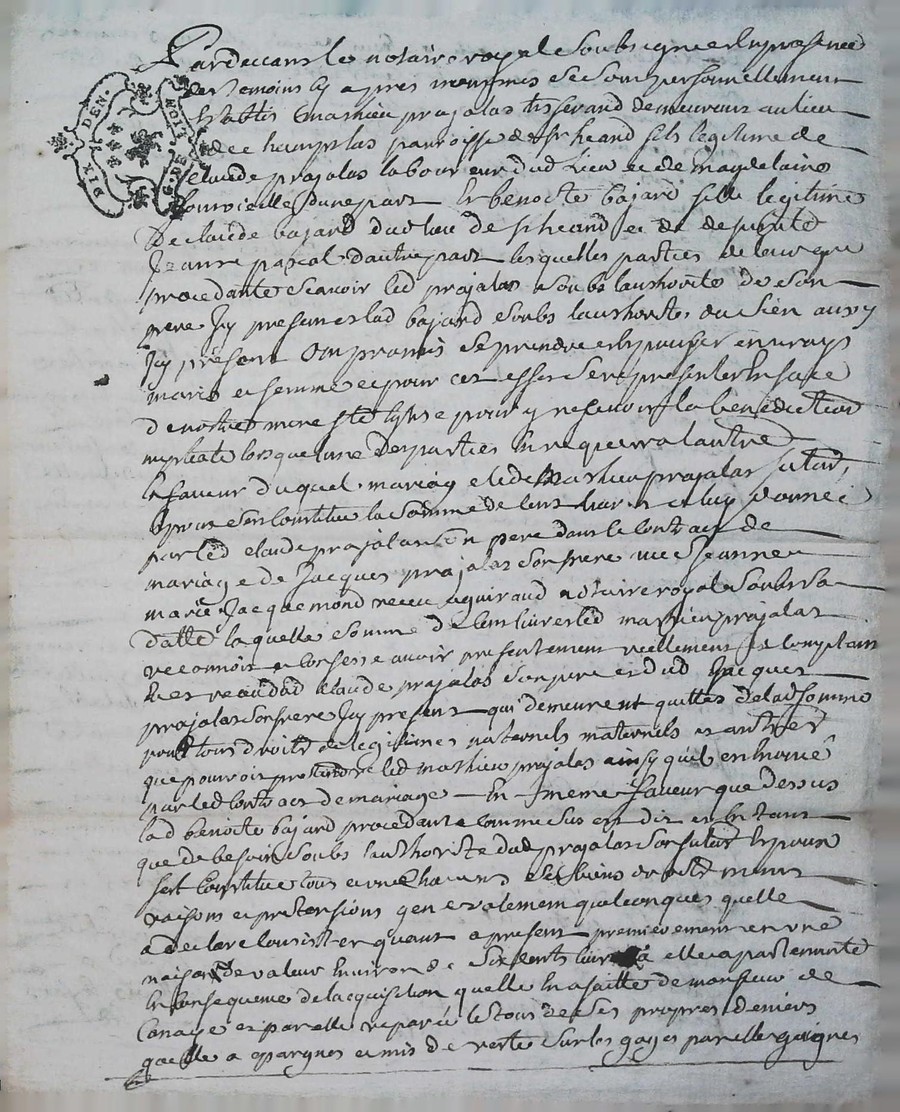 Pardevant le notaire royal soubsigne et en presence
des temoins cy apres nommes se sont personnellement
establis mathieu projalas tisserand demeurant au lieu
de champlas parroisse de st heand fils legitime de
claude projalas laboureur dud lieu et de magdelaine
d'une part et benoite bajard fille legitime
de claude bajard du lieu de st heand et de
pascal d'autre part lesquelles parties de leur gre
procedants scavoir led projalas soubs lauthorite de son
pere Icy present et lad bajard soubs lauthorite du sien aussy
Icy present ont promis se prendre et epouser en vrays
maris et femme et pour cet effet se representer en face
de nostre mere ste eglise pour y recepvoir la benediction
nuptiale lorsque lune des parties en requerra lautre
En faveur duquel mariage led mathieu projalas futur
Epoux sest constitue la somme de cent livres a luy donnee
par led claude projalas son pere dans le contract de
mariage de Jacques projalas son frere avec Jeanne
marie Jacquemond receu notaire royal soubs sa
datte laquelle somme de cent livres led mathieu projalas
reconnoit et confesse avoir presentement reellement et comptant
receu dud claude projalas son pere et dud Jacques
projalas son frere Icy present qui demeurent quittes de lad somme
pour tous droits de legitimes paternels maternels et autres
que pourroit pretendre led mathieu projalas ainsy quil est
par led contract de mariage En meme faveur que dessus
lad benoite bajard procedante comme sus est dit et en tant
que de besoin soubs lauthorite dud projalas son futur epoux
sest constitue tous et uns chacuns ses biens droits noms
raisons et pretensions generalement quelconques quelle
a declare consister quant a present premierement en une
maison de valeur environ de six cents livres a elle apartenante
En consequence de lacquisition quelle en a faitte de monsieur de
et par elle reparée le tout de ses propres deniers
quelle a epargnes et mis de reste sur les gages par elle gaignes
DIX DEN.
G. RE. LION